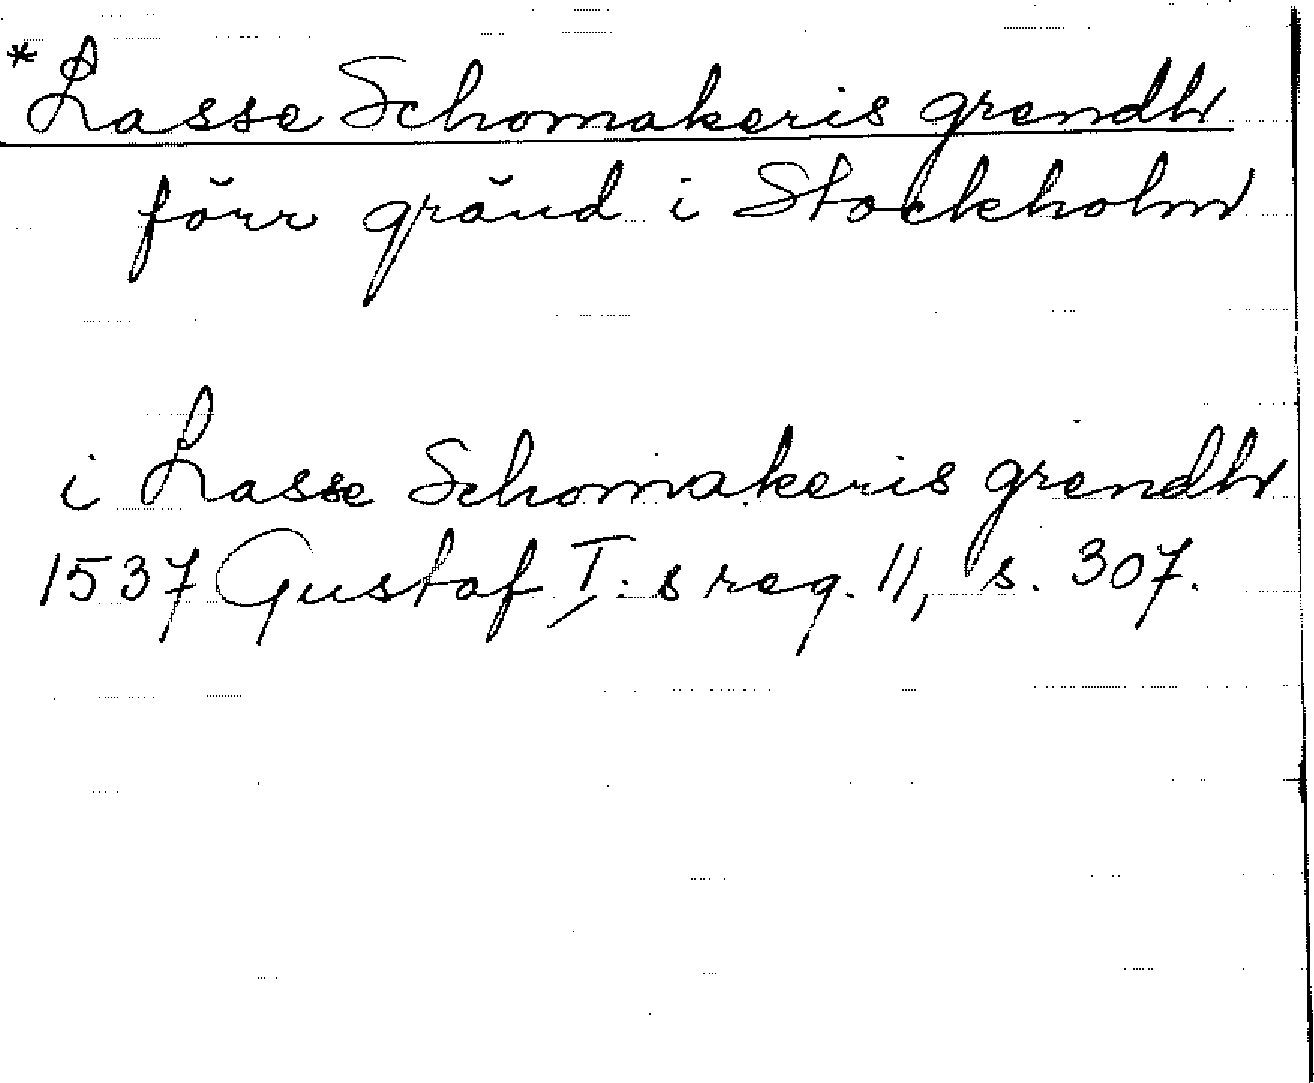 *Lasse Schomakeris grendh
förr gränd i Stockholm
i Lasse Schomakeris grendh
1537 Gustaf I:s reg. 11, s. 307.